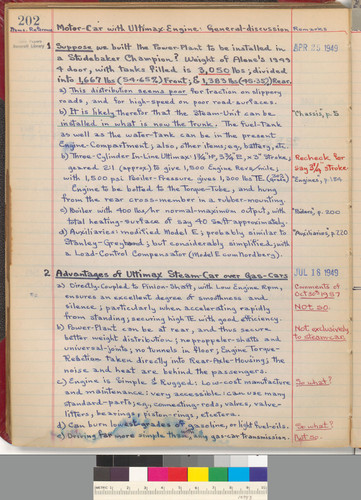 202
Motor-Car with Ultimax Engine: General-discussion
Remarks
1. Suppose we built the Power-Plant to be installed in
APR 25 1949
a Studebaker Champion? Weight of Alene's 1949
4 door, with tanks filled is 3,050 lbs; divided
into 1,667 lbs (54.65%) Front; & 1,383 lbs (45.35%) Rear.
a) This distribution seems poor for traction on slippery
roads, and for high-speed on poor road-surfaces.
b) It is likely therefor that the Steam-Unit can be
"Chassis", p.
installed in what is now the Trunk, etc. The Fuel-Tank
as well as the water-Tank can be in the present
Engine-Compartment; also, other items; eg, battery, etc.
b) Three-Cylinder In-Line Ultimax:
Recheck for
geared 2:1 (approx) to give 1,800 Engine Revs/mile;
say Stroke
with 1,500 psi Boiler-Pressure gives 1,300 lbs TE.
"Engines", p. 184
Engine to be bolted to the Torque-Tube, and hung
from the rear cross-member in a rubber-mounting.
c) Boiler with 400 lbs/hr normal-maximum output; with
"Boilers", p. 200
total heating-surface of say 90 Sqft approximately.
d) Auxiliaries: modified Model E; probably similar to
"Auxiliaries", p. 220
Stanley-Greyhound; but considerably simplified; with
a Load-Control Compensator (Model E or Nordberg).
2. Advantages of Ultimax Steam-Car over Gas-Cars
JUL 18 1949
a) Directly-Coupled to Pinion-Shaft, with Low Engine Rpm,
Comments of
ensures an excellent degree of smoothness and
Oct 30th 1957
silence; particularly when accelerating rapidly
Not so.
from standing; securing high TE with good efficiency.
b) Power-Plant can be at rear, and thus secure
Not exclusively
better weight distribution; no propeller-shafts and
to steam cars
universal-joints; no tunnels in floor; Engine Torque-
Reaction taken directly into Rear-Axle-Housing; the
noise and heat are behind the passengers.
c) Engine is Simple & Rugged: Low-cost manufacture
So what?
and maintenance: very accessible: can use many
standard-parts; eg, connecting-rods, valves, valve-
lifters, bearings, piston-rings, etcetera.
d) Can burn lowest-grades of gasoline, or light fuel-oils.
So what?
e) Driving far more simple than any gas-car transmission.
Not so.